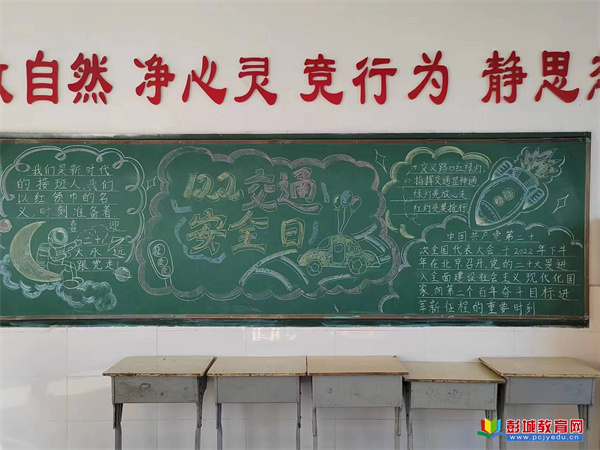 自然 净心灵 竞行为 静思
我们是新时代
的接班人,我们
以红领巾的名
义时刻准备着
喜迎
二十大
永远
跟党走
122交通
安全日
交叉路口红绿灯,
指挥交通显神通
绿灯亮放心走
红灯亮莫抢行
中国共产党第二十
次全国代表大会,于2022年下半
年在北京召开,党的二十大是进
入全面建设社会主义现代化国
家向第二个百年奋斗目标进
军新征程的重要时刻
彭城教育网
www.pcjyedu.cn